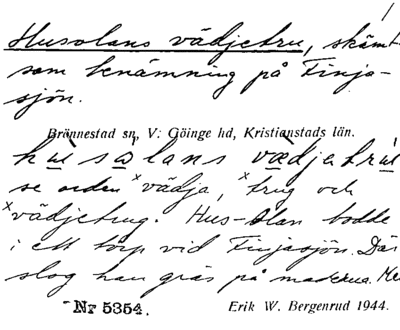 Husolans vädjetru, skämt-
som benämning på Finja-
sjön.
Brönnestad sn, V. Göinge hd, Kristianstads län.
husolans vædjatru
se orden ˣvädja, ˣtrug och
ˣvädjetrug. Hus-Olan bodde
i ett torp vid Finjasjön. Där
slog han gräs på maderna. Me
Nr 5354. Erik W. Bergenrud 1944.